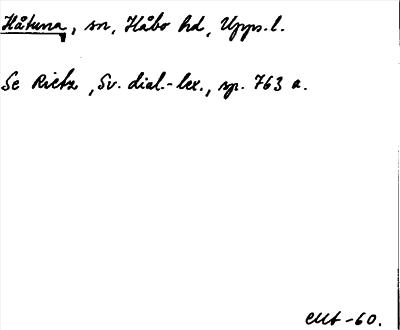 Håtuna, sn, Håbo hd, Upps.l.
Se Rietz, Sv. dial.-lex., sp. 763 a.
-60.